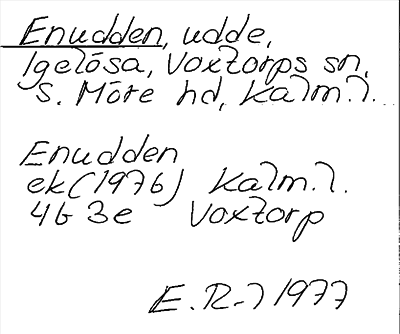 Enudden, udde,
Igelösa, Voxtorps sn,
S. Möre hd, Kalm.l.
Enudden
ek (1976) Kalm.l.
4G 3e Voxtorp
E.R-l 1977